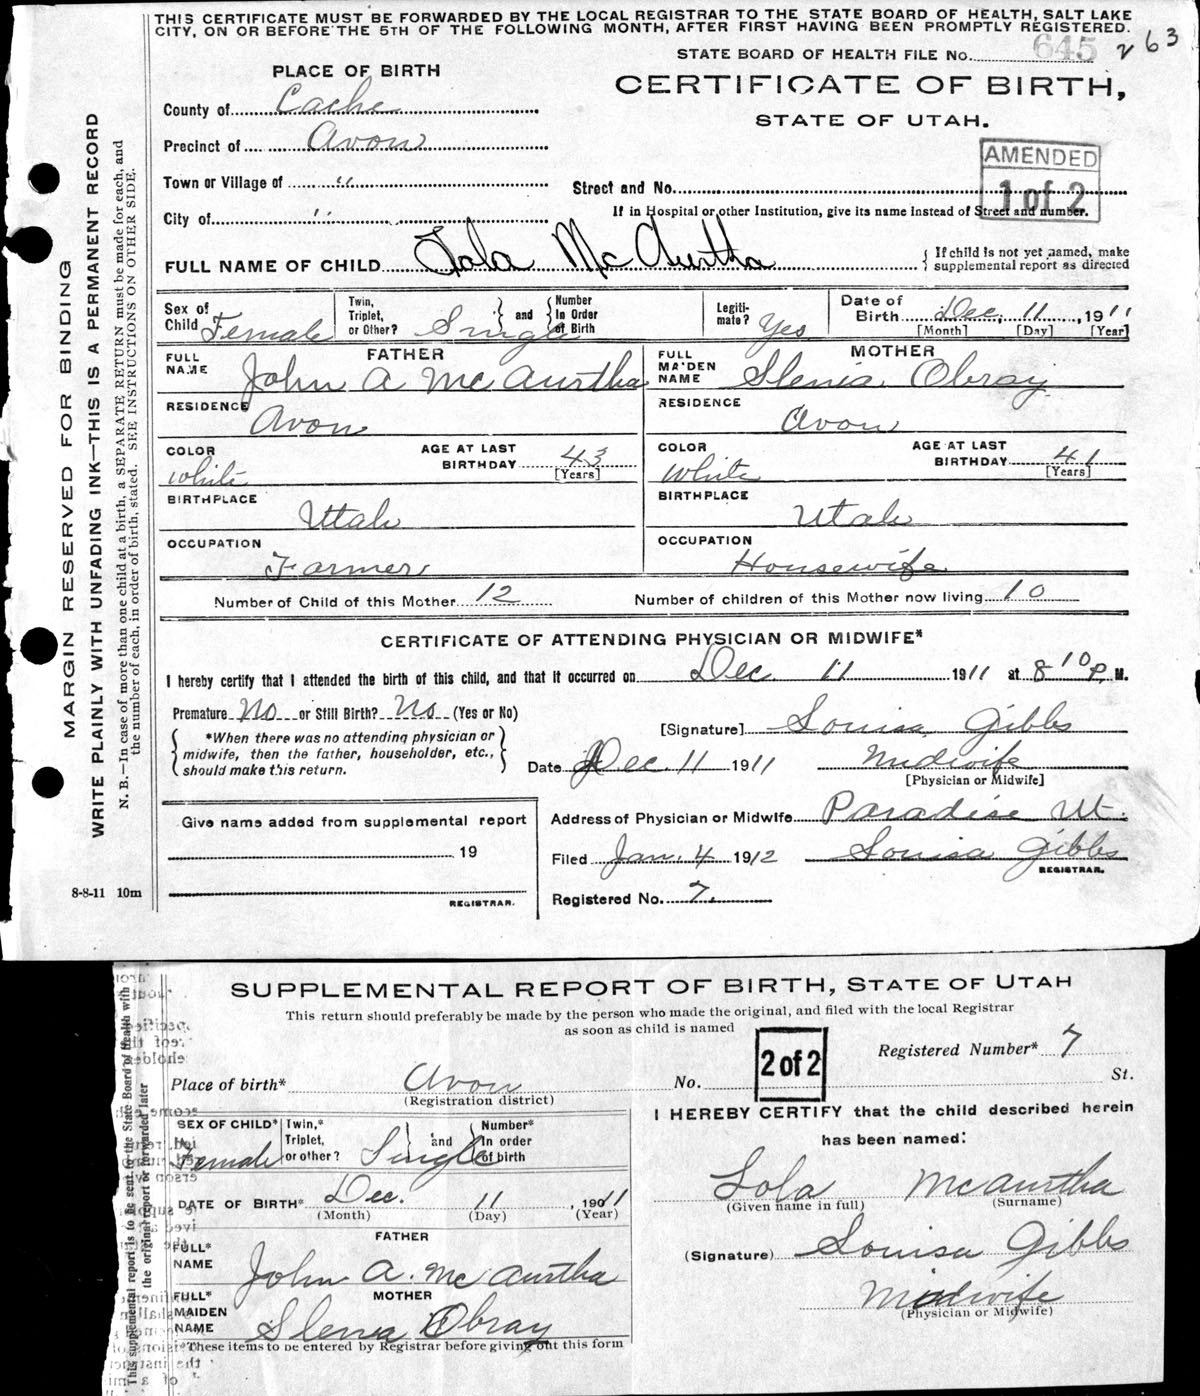 THIS CERTIFICATE MUST BE FORWARDED BY THE LOCAL REGISTRAR TO THE STATE BOARD OF HEALTH, SALT LAKE
CITY, ON OR BEFORE THE 5TH OF THE FOLLOWING MONTH, AFTER FIRST HAVING BEEN PROMPTLY REGISTERED.
STATE BOARD OF HEALTH FILE No. 645 263
PLACE OF BIRTH
CERTIFICATE OF BIRTH,
STATE OF UTAH.
County of Cache
Precinct of Avon
AMENDED
1 of 2
Town or Village of "
Street and No.
City of "
If in Hospital or other Institution, give its name instead of Street and number.
FULL NAME OF CHILD Lola McAurtha
If child is not yet named, make
supplemental report as directed
Sex of Child Female
Twin, Triplet, or Other? Single
and Number In Order of Birth
Legiti-mate? Yes
Date of Birth Dec, 11, 1911
[Month] [Day] [Year]
FATHER
FULL NAME John A McAurtha
RESIDENCE Avon
COLOR white
AGE AT LAST BIRTHDAY 43 [Years]
BIRTHPLACE Utah
OCCUPATION Farmer
MOTHER
FULL MAIDEN NAME Slenia Obray
RESIDENCE Avon
COLOR White
AGE AT LAST BIRTHDAY 41 [Years]
BIRTHPLACE Utah
OCCUPATION Housewife
Number of Child of this Mother 12
Number of children of this Mother now living 10
CERTIFICATE OF ATTENDING PHYSICIAN OR MIDWIFE*
I hereby certify that I attended the birth of this child, and that it occurred on Dec 11 1911 at 8 10 P. M.
Premature No or Still Birth? No (Yes or No)
*When there was no attending physician or
midwife, then the father, householder, etc.,
should make this return.
[Signature] Louisa Gibbs
Date Dec. 11 1911
Midwife
[Physician or Midwife]
Give name added from supplemental report
19
REGISTRAR.
Address of Physician or Midwife Paradise Ut.
Filed Jan. 4 1912 Louisa Gibbs
REGISTRAR.
Registered No. 7.
8-8-11 10m
MARGIN RESERVED FOR BINDING
WRITE PLAINLY WITH UNFADING INK—THIS IS A PERMANENT RECORD
N. B.—In case of more than one child at a birth, a SEPARATE RETURN must be made for each, and
the number of each, in order of birth, stated. SEE INSTRUCTIONS ON OTHER SIDE.
SUPPLEMENTAL REPORT OF BIRTH, STATE OF UTAH
This return should preferably be made by the person who made the original, and filed with the local Registrar
as soon as child is named
2 of 2
Registered Number* 7
Place of birth* Avon
(Registration district)
No. St.
SEX OF CHILD* Female
Twin,* Triplet, or other? Single
and Number* In order of birth
DATE OF BIRTH* Dec. 11, 1911
(Month) (Day) (Year)
FATHER
FULL* NAME John A. McAurtha
MOTHER
FULL* MAIDEN NAME Slenia Obray
*These items to be entered by Registrar before giving out this form
I HEREBY CERTIFY that the child described herein
has been named:
Lola McAurtha
(Given name in full) (Surname)
(Signature) Louisa Gibbs
Midwife
(Physician or Midwife)
This supplemental report is to be sent to the State Board of Health with
the original report or forwarded later